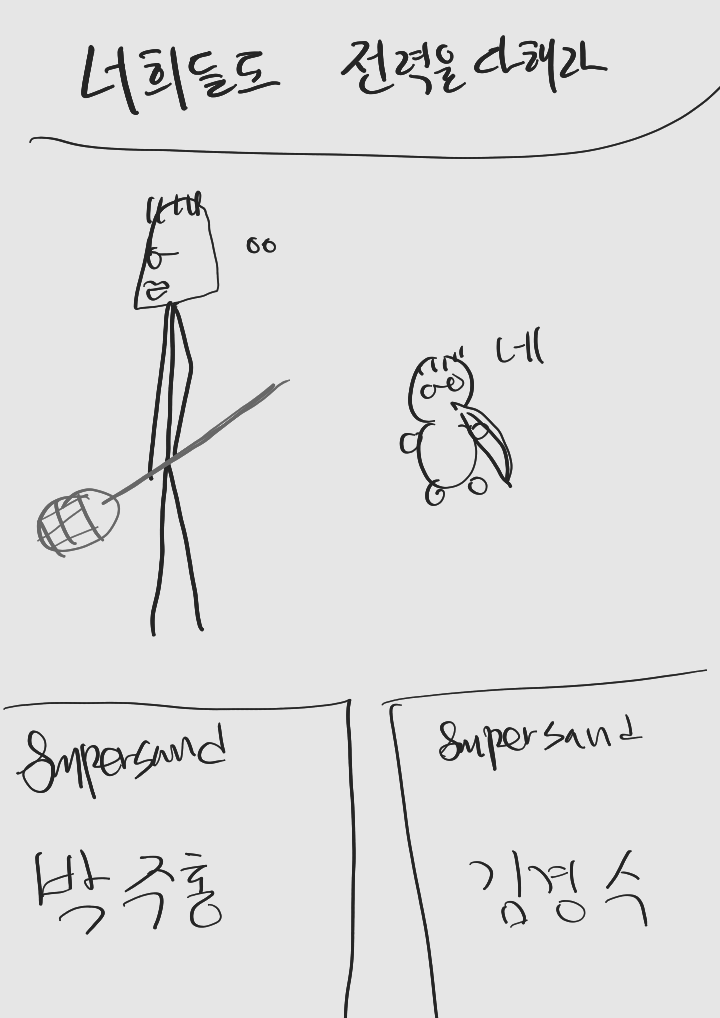 너희들도 전력을 다해라
ㅇㅇ
네
Supersand
박주홍
Supersand
김경수